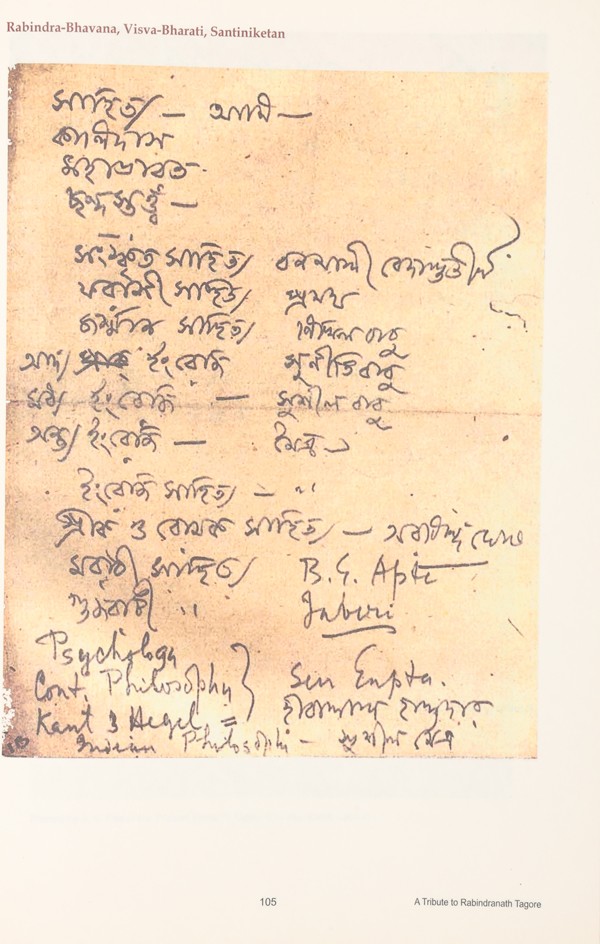 Rabindra-Bhavana, Visva-Bharati, Santiniketan
সাহিত্য — আমি —
কালিদাস
মহাভারত
ছন্দস্তত্ত্ব —
সংস্কৃত সাহিত্য বনমালী বেদান্ততীর্থ
ফরাসী সাহিত্য প্রমথ
জর্ম্মান সাহিত্য বাবু
আদ্য ইংরেজি সুনীতিবাবু
মধ্য ইংরেজি — সুশীল বাবু
অন্ত্য ইংরেজি — মৈত্র
ইংরেজি সাহিত্য — "
গ্রীক ও রোমক সাহিত্য — অরবিন্দ ঘোষ
মরাঠী সাহিত্য B. G. Apte
গুজরাটী "
Psychology
Cont. Philosophy } Sen Gupta.
Kant & Hegel = হীরালাল হালদার
Indian Philosophy — সুশীল মৈত্র
105
A Tribute to Rabindranath Tagore